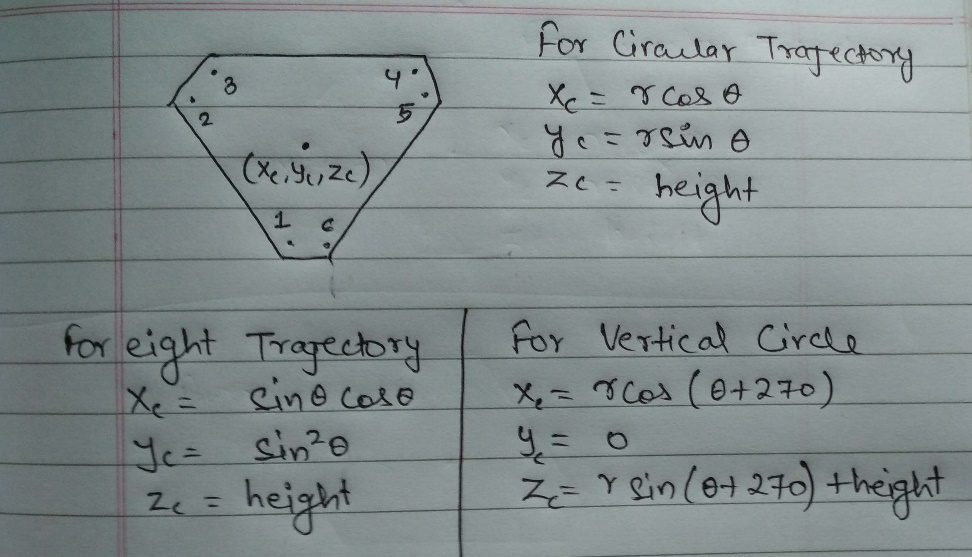 3
4
2
5
(xc, yc, zc)
1 6
For Circular Trajectory
xc = r cos θ
yc = r sin θ
zc = height
For eight Trajectory
xc = sin θ cos θ
yc = sin²θ
zc = height
For Vertical Circle
xc = r cos (θ+270)
yc = 0
zc = r sin (θ+270) + height